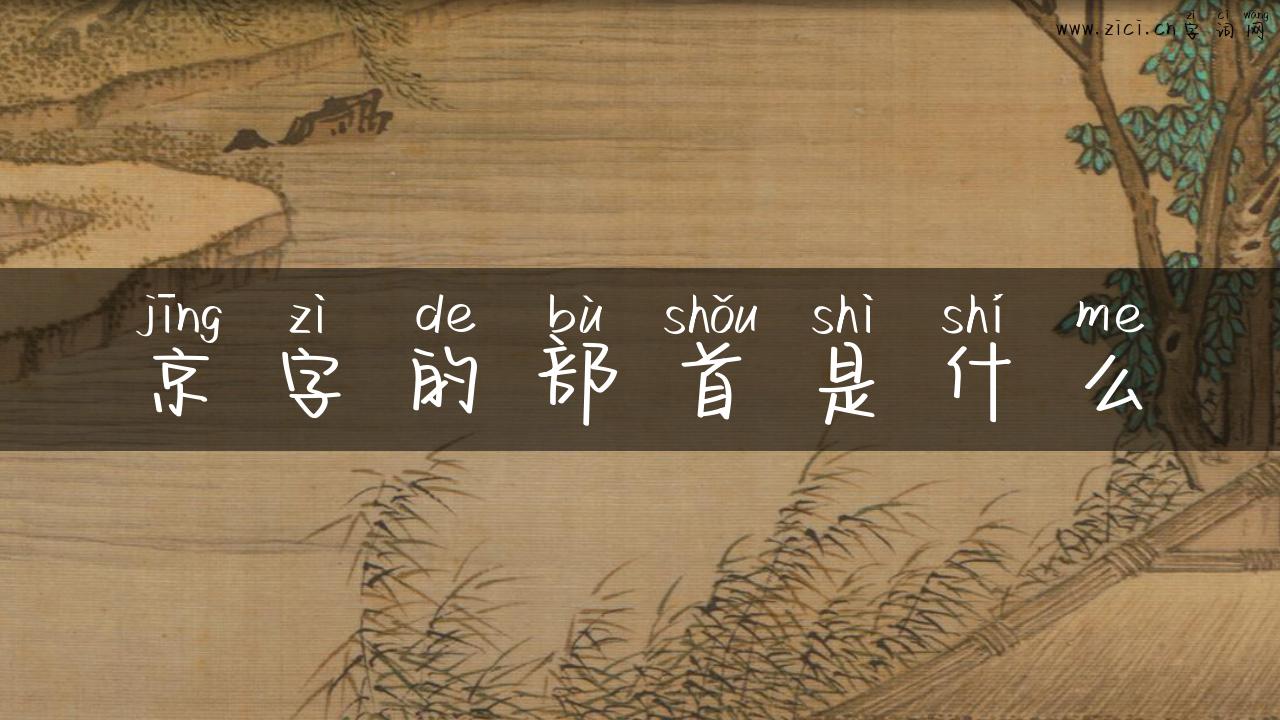 zì cí wǎng
www.zici.cn字词网
jīng zì de bù shǒu shì shí me
京字的部首是什么